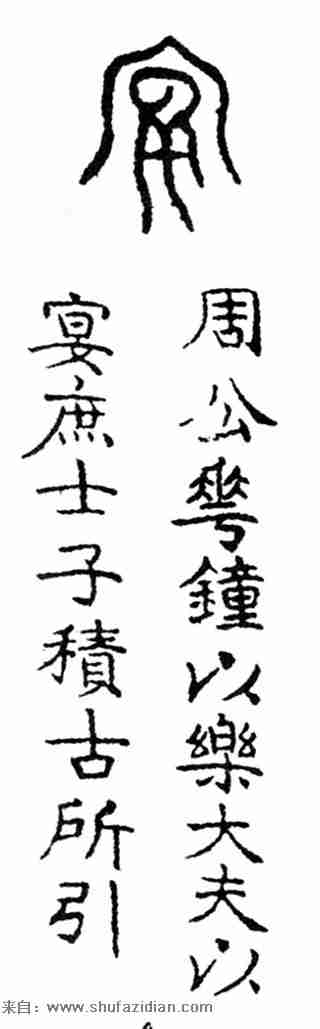 周公華鐘以樂大夫以
宴庶士子積古所引
来自：www.shufazidian.com